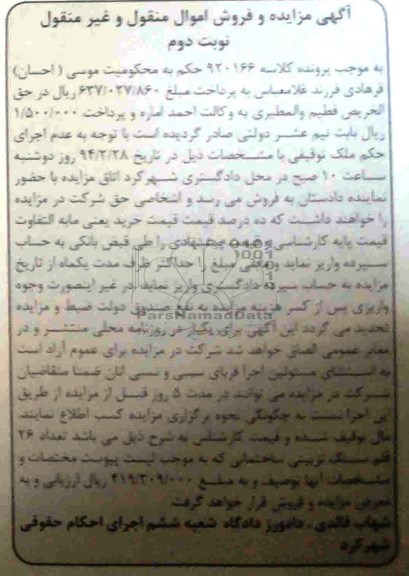 آگهی مزایده و فروش اموال منقول و غیر منقول
نوبت دوم
به موجب پرونده کلاسه ۹۲۰۱۶۶ حکم به محکومیت موسی ( احسان)
فرهادی فرزند غلامعباس به پرداخت مبلغ ۶۳۷/۰۲۷/۸۶۰ ریال در حق
الحریص فطیم والمطیری به وکالت احمد اماره و پرداخت ۱/۵۰۰/۰۰۰
ریال بابت نیم عشر دولتی صادر گردیده است با توجه به عدم اجرای
حکم ملک توقیفی با مشخصات ذیل در تاریخ ۹۴/۲/۲۸ روز دوشنبه
ساعت ۱۰ صبح در محل دادگستری شهرکرد اتاق مزایده با حضور
نماینده دادستان به فروش می رسد و اشخاصی حق شرکت در مزایده
را خواهند داشت که ده درصد قیمت قیمت خرید یعنی مابه التفاوت
قیمت پایه کارشناسی و قیمت پیشنهادی را طی قبض بانکی به حساب
سپرده واریز نماید و مابقی مبلغ را حداکثر ظرف مدت یکماه از تاریخ
مزایده به حساب سپرده دادگستری واریز نماید، در غیر اینصورت وجوه
واریزی پس از کسر هزینه مزایده به نفع صندوق دولت ضبط و مزایده
تجدید می گردد این آگهی برای یکبار در روزنامه محلی منتشر و در
معابر عمومی الصاق خواهد شد شرکت در مزایده برای عموم آزاد است
به استثنای مسئولین اجرا قربای سببی و نسبی آنان ضمنا متقاضیان
شرکت در مزایده می توانند در مدت ۵ روز قبل از مزایده از طریق
این اجرا نسبت به چگونگی نحوه برگزاری مزایده کسب اطلاع نمایند.
مال توقیف شده و قیمت کارشناس به شرح ذیل می باشد تعداد ۲۶
قلم سنگ تزیینی ساختمانی که به موجب لیست پیوست مختصات و
مشخصات آنها توصیف و به مبلغ ۴۱۹/۳۰۹/۰۰۰ ریال ارزیابی و به
معرض مزایده و فروش قرار خواهد گرفت.
شهاب قائدی ، دادورز دادگاه شعبه ششم اجرای احکام حقوقی
شهرکرد
ParsNamadData